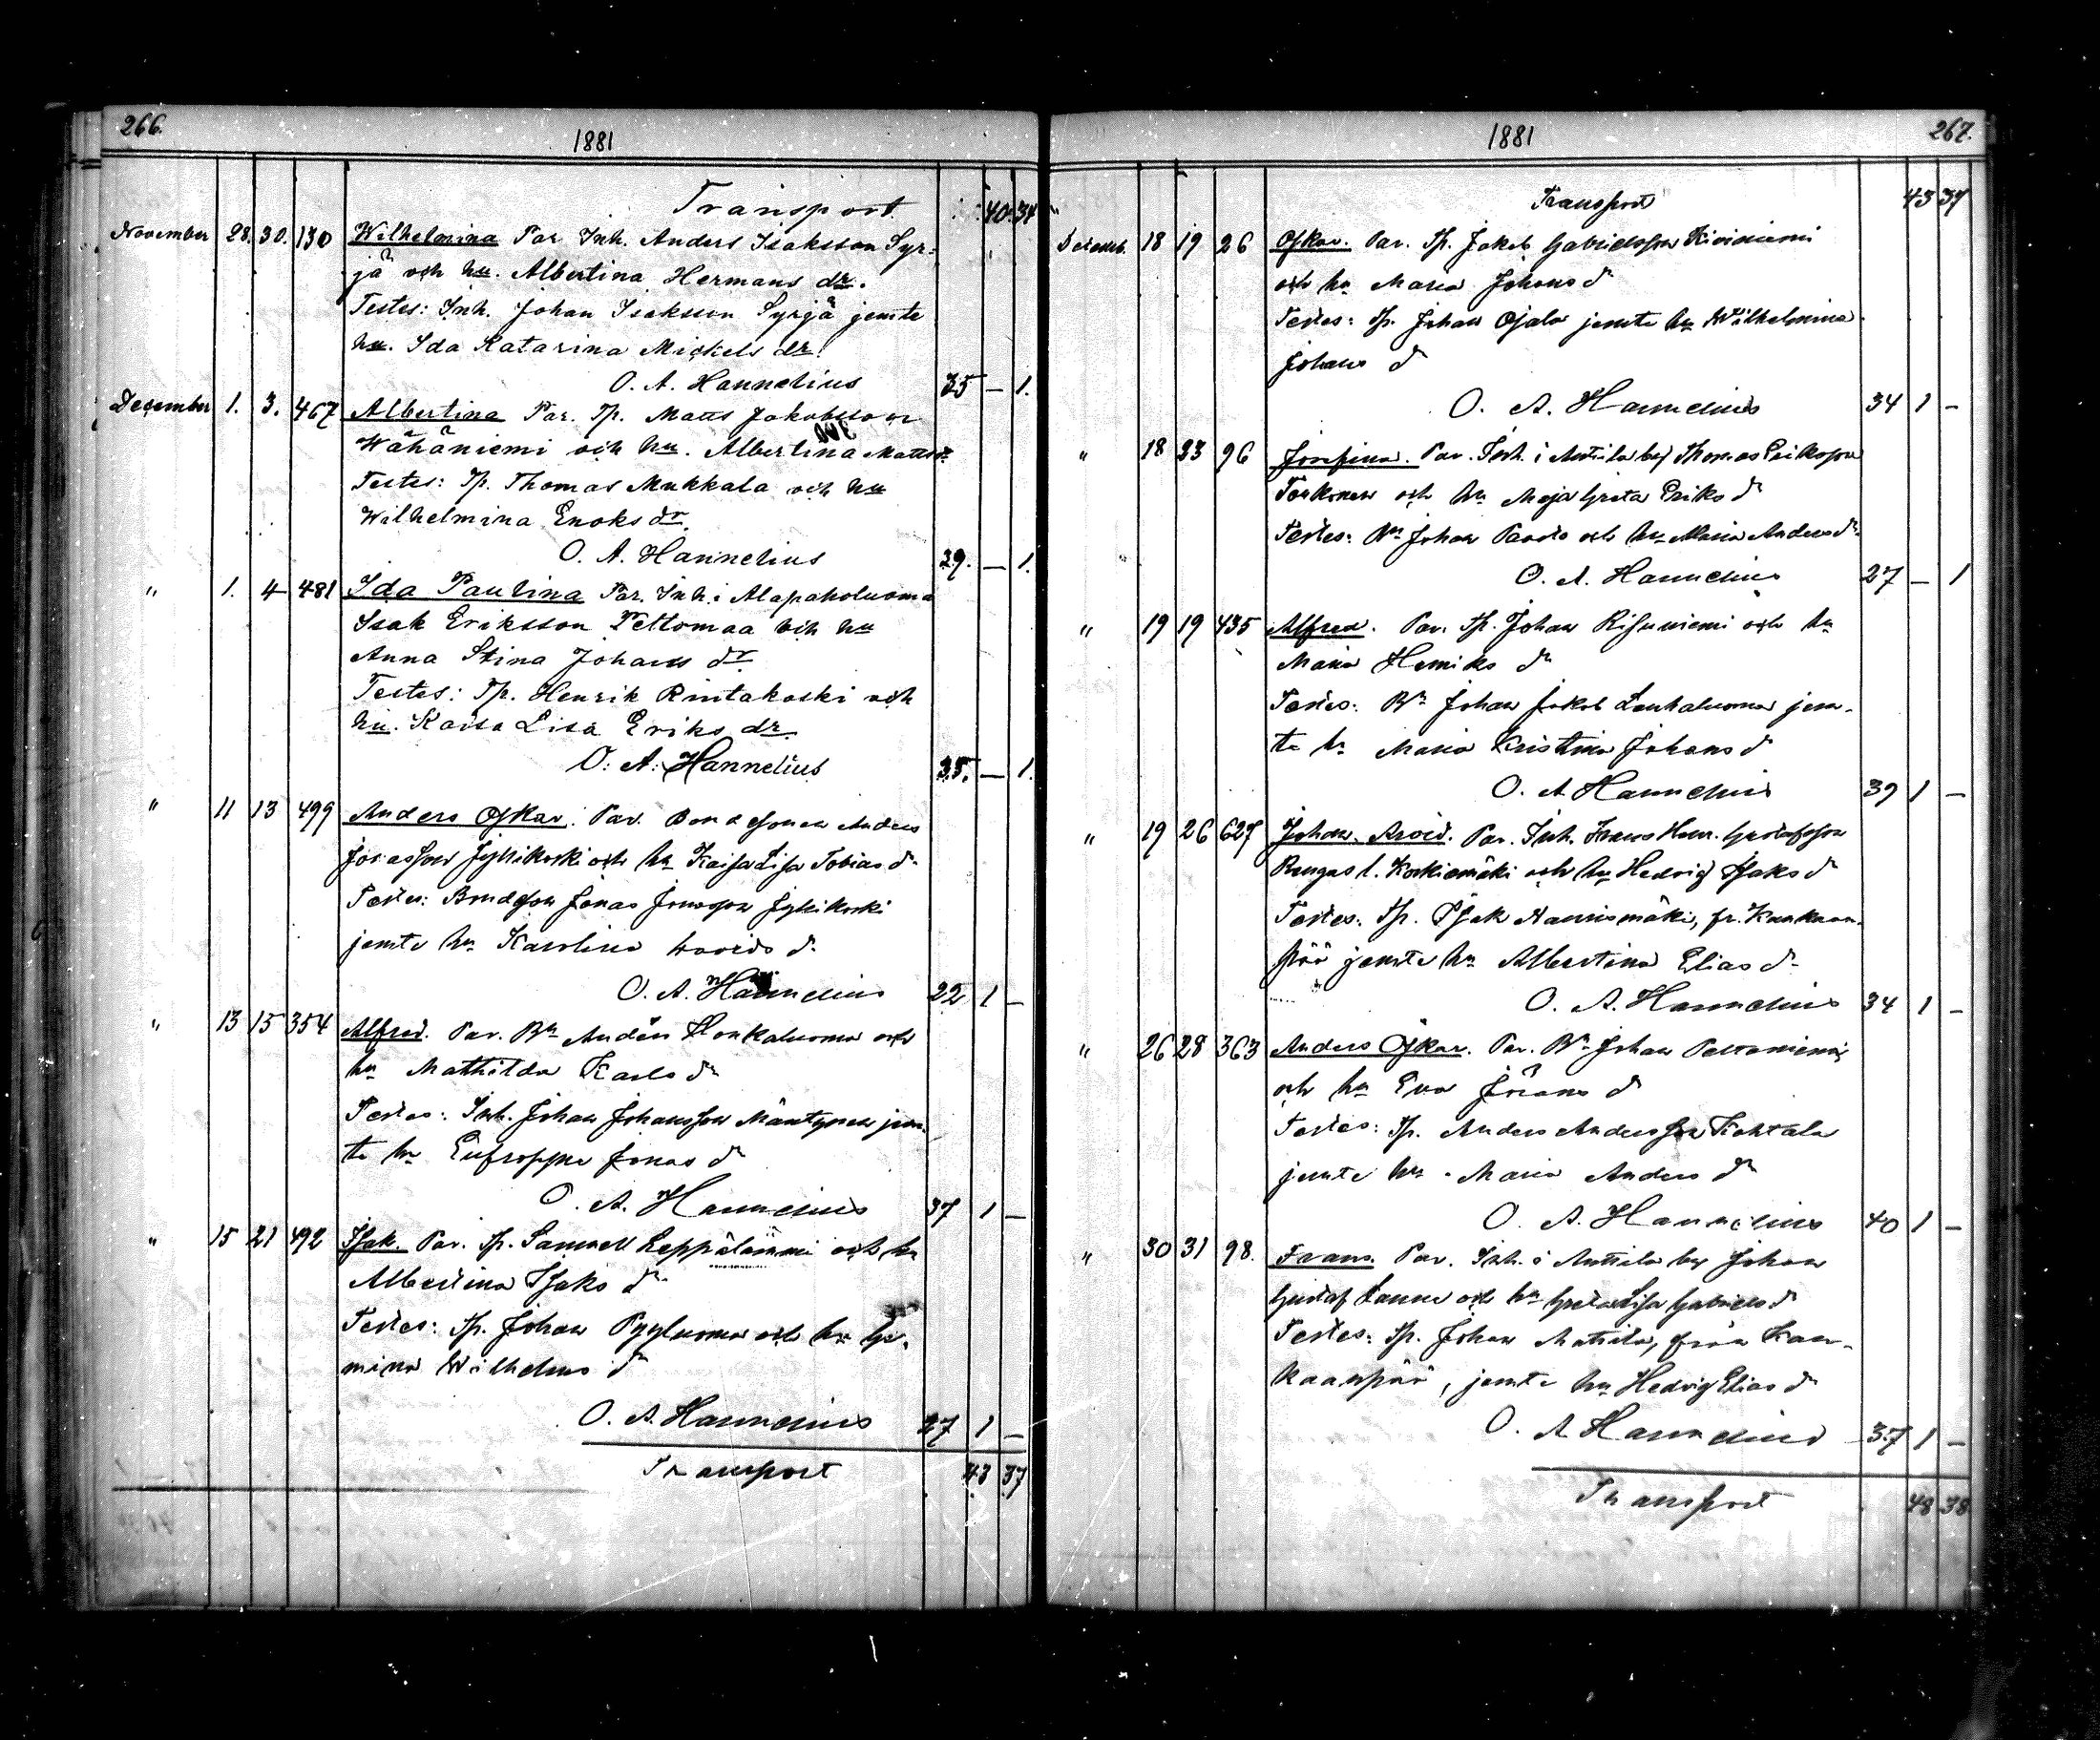 266.
1881
Transport 40. 34
November 28. 30. 130 Wilhelmina Par Inh. Anders Isaksson Syr=
jä och hu. Albertina Hermans dr.
Testes: Inh. Johan Isaksson Syrjä jemte
hu. Ida Katarina Mickels dr.
O. A. Hannelius 35 — 1.
December 1. 3. 467 Albertina Par. Tp. Matts Jakobsson
Wähäniemi och hu. Albertina Matts dr.
Testes: Tp. Thomas Mukkala och hu
Wilhelmina Enoks dr.
O. A. Hannelius 29. — 1.
" 1. 4 481 Ida Paulina Par. Inh. i Alapaholuoma
Isak Eriksson Peltomaa och hu
Anna Stina Johans dr.
Testes: Tp. Henrik Rintakoski och
hu. Kaisa Lisa Eriks dr.
O. A. Hannelius 35. — 1.
" 11 13 499 Anders Oskar. Par. Bondesonen Anders
Jonasson Jyllikoski och hu Kaisa Lisa Tobias dr
Testes: Bondeson Jonas Jonasson Jyllikoski
jemte hu Karolina dr
O. A. Hannelius 22 1 —
" 13 15 354 Alfred. Par. Bn Anders Honkaluoma och
hu Mathilda Karls dr
Testes: Inh. Johan Johansson Mäntynen jem-
te hu Eufrosyne Jonas dr
O. A. Hannelius 37 1 —
" 15 21 492 Isak. Par. Tp. Samuell Leppälammi och hu
Albertina Isaks dr
Testes: Tp. Johan Pyyluoma och hu He-
mina Wilhelms dr
O. A. Hannelius 27 1 —
Transport 43 37
1881
267.
Transport 43 37
Decemb. 18 19 26 Oskar. Par. Tp. Jakob Gabrielsson Kiviniemi
och hu Maria Johans dr
Testes: Tp. Johan Ojala jemte hu Wilhelmina
Johans dr
O. A. Hannelius 34 1 —
" 18 23 96 Josefina. Par. Inh. i Anttila by Thomas Eriksson
Torkonen och hu Maja Greta Eriks dr
Testes: Bn Johan och hu Maria Anders dr
O. A. Hannelius 27 — 1
" 19 19 435 Alfred. Par. Tp. Johan Risuniemi och hu
Maria Henriks dr
Testes: Bn Johan Jakob Lauhaluoma jem-
te hu Maria Kristina Johans dr
O. A Hannelius 39 1 —
" 19 26 627 Johan Arvid. Par. Inh. Frans Henr. Gustafsson
Rengas l. Korkiamäki och hu Hedvig Isaks dr
Testes: Tp. Isak Naurismäki, fr. Kankaan-
pää jemte hu Albertina Elias dr
O. A. Hannelius 34 1 —
" 26 28 363 Anders Oskar. Par. Bn Johan Peltoniemi
och hu Eva Jörans dr
Testes: Tp. Anders Andersson Kohtala
jemte hu Maria Anders dr
O. A. Hannelius 40 1 —
" 30 31 98. Frans. Par. Inh. i Anttila by Johan
Gustaf Lanne och hu Greta Lisa Gabriels dr
Testes: Tp. Johan Mattila, från Kan-
kaanpää, jemte hu Hedvig Elias dr
O. A Hannelius 37 1 —
Transport 48 38